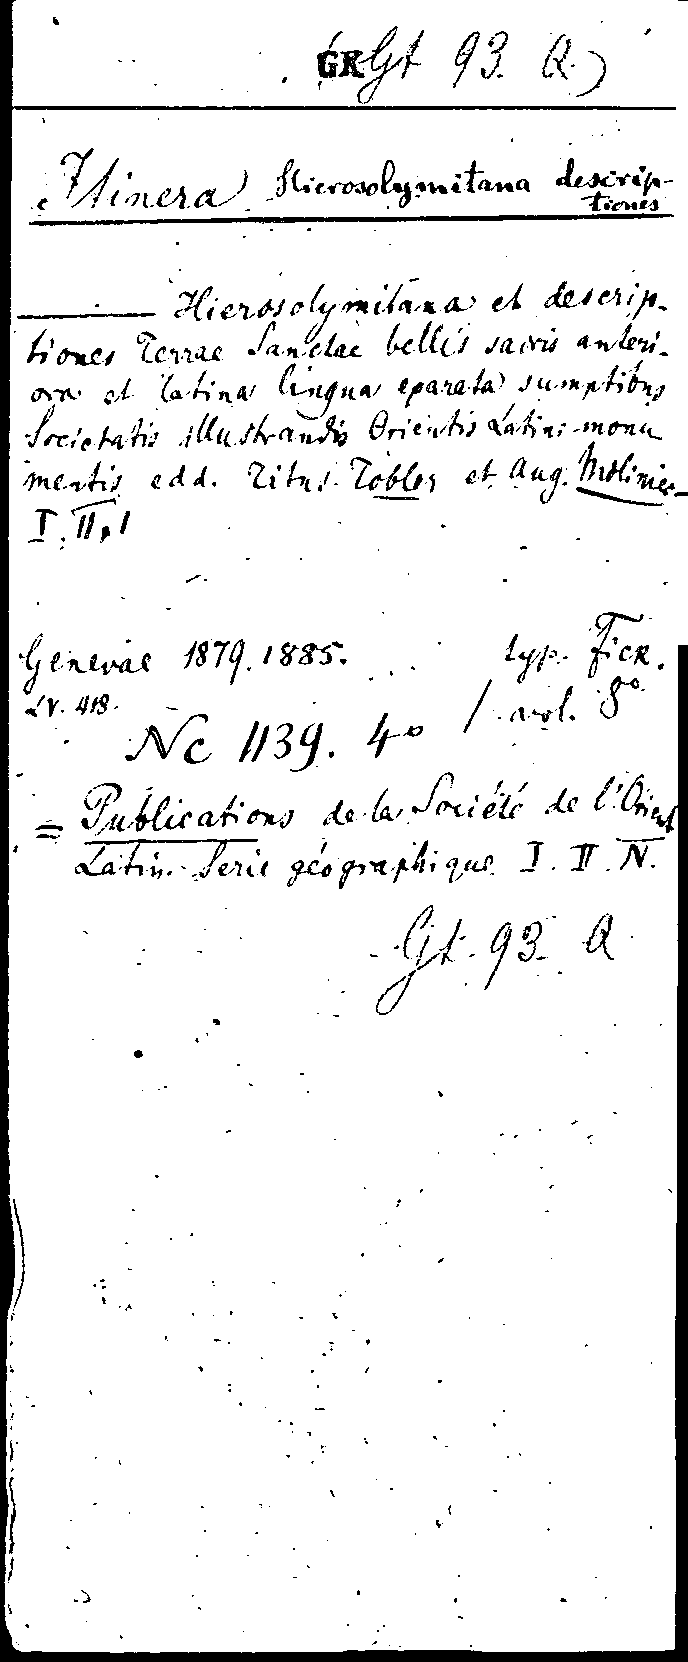 GR Gt 93. Q.)
Itinera Hierosolymitana descrip-
tiones
——— Hierosolymitana et descrip-
tiones Terrae Sanctae bellis sacris anteri-
ora et latina lingua exarata sumptibus
Societatis illustrandis Orientis Latini monu
mentis edd. Titus Tobler et Aug. Molinier
I. II,1
Genevae 1879. 1885. typ. Fick.
LV. 418. / vol. 8°
Nc 1139. 4°
= Publications de la Société de l'Orient
Latin. Serie géographique I. II. IV.
Gt. 93. Q